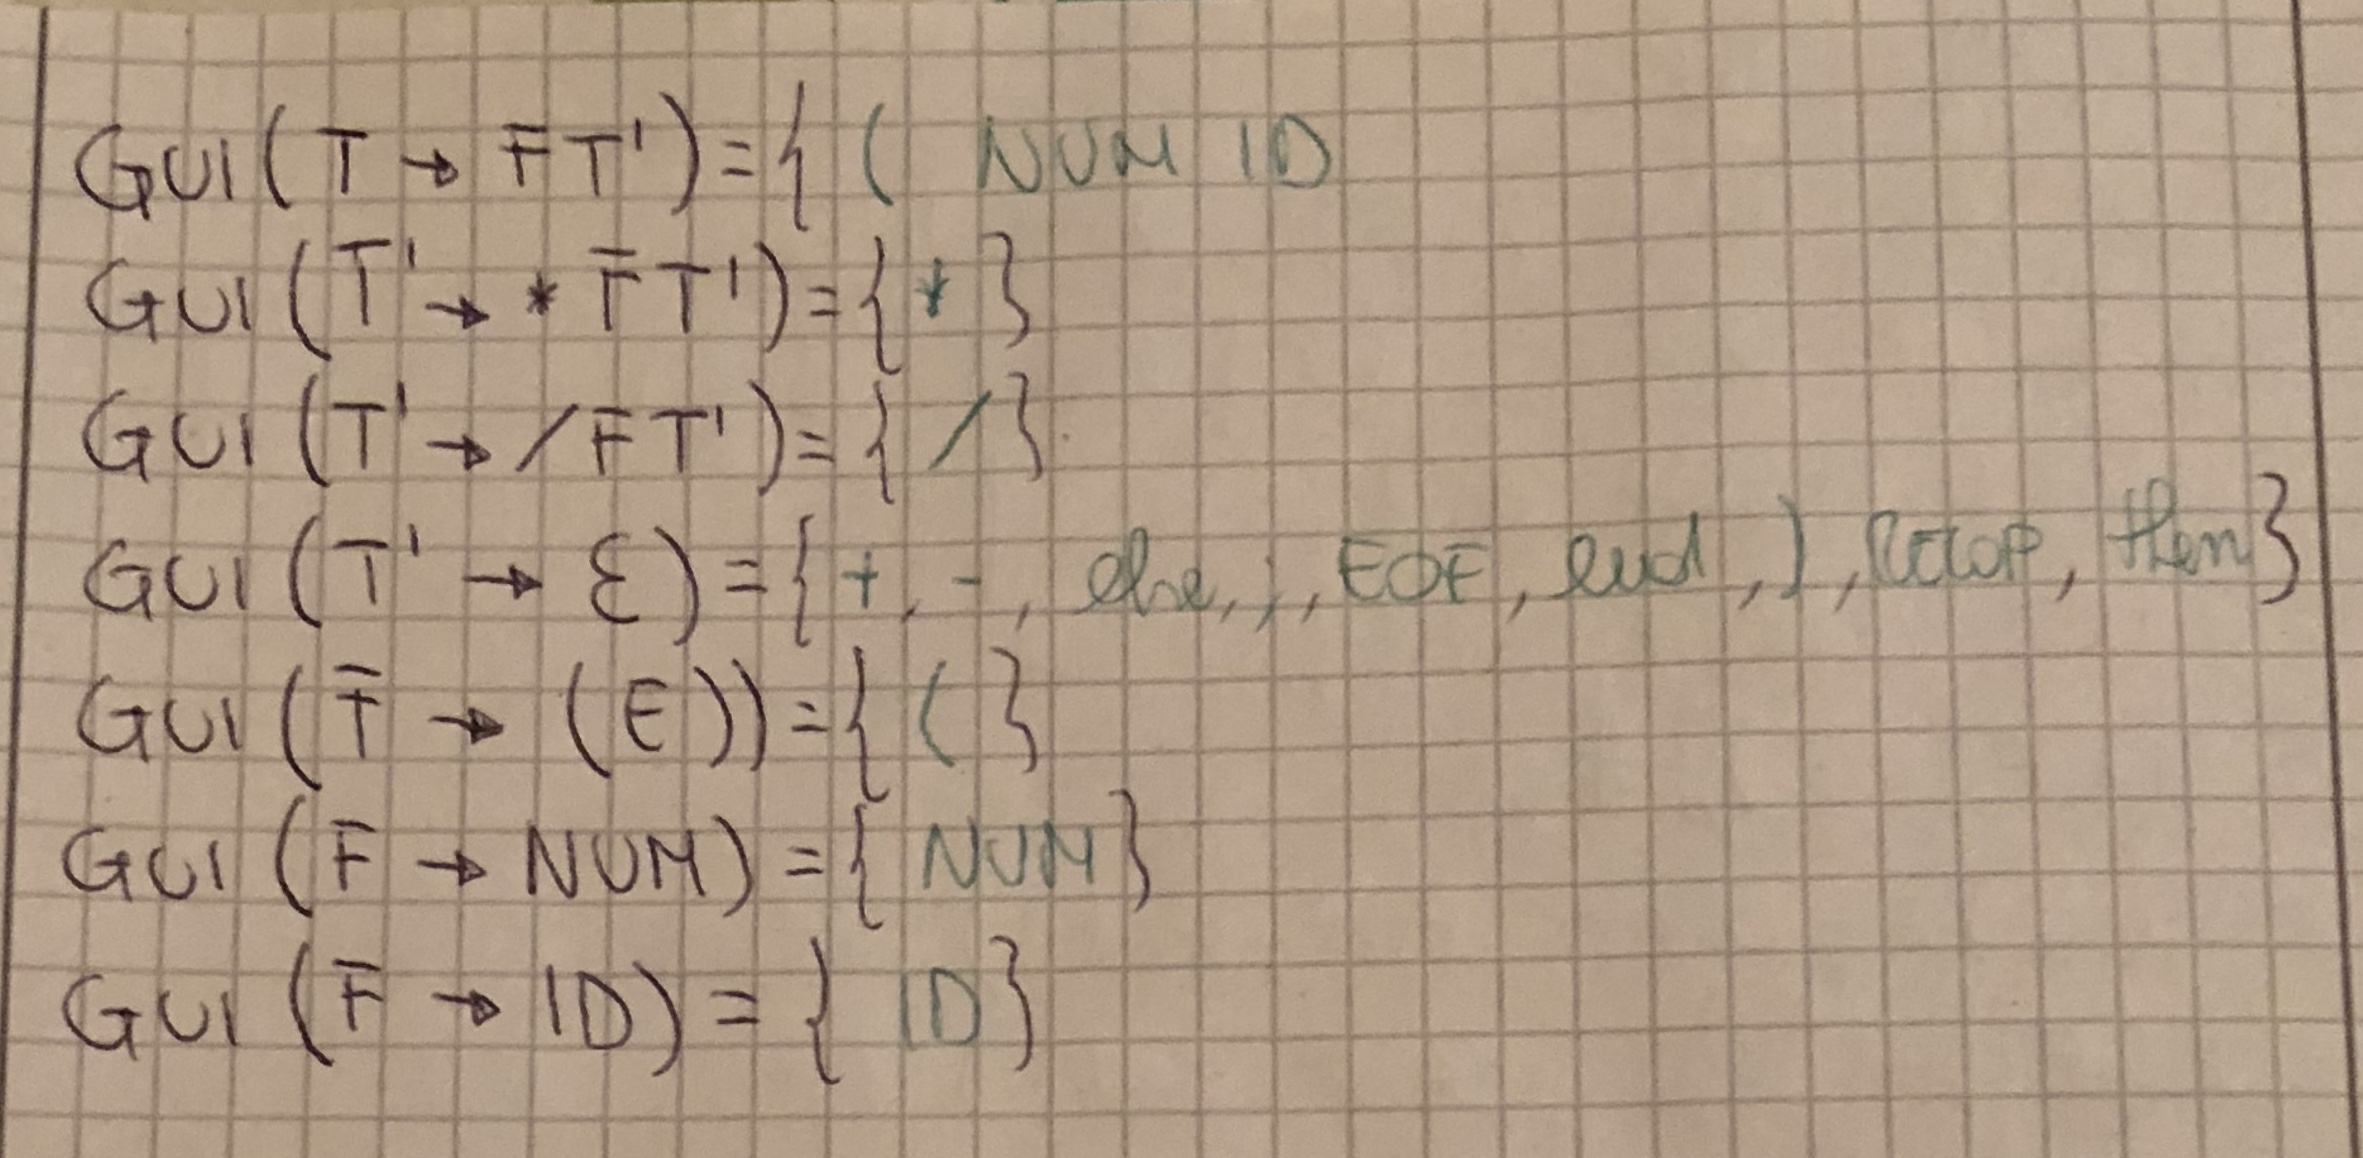 GUI(T → FT') = { ( NUM ID
GUI(T' → * FT') = { * }
GUI(T' → / FT') = { / }
GUI(T' → ε) = { +, -, else, ;, EOF, end, ), RELOP, then }
GUI(F → (E)) = { ( }
GUI(F → NUM) = { NUM }
GUI(F → ID) = { ID }